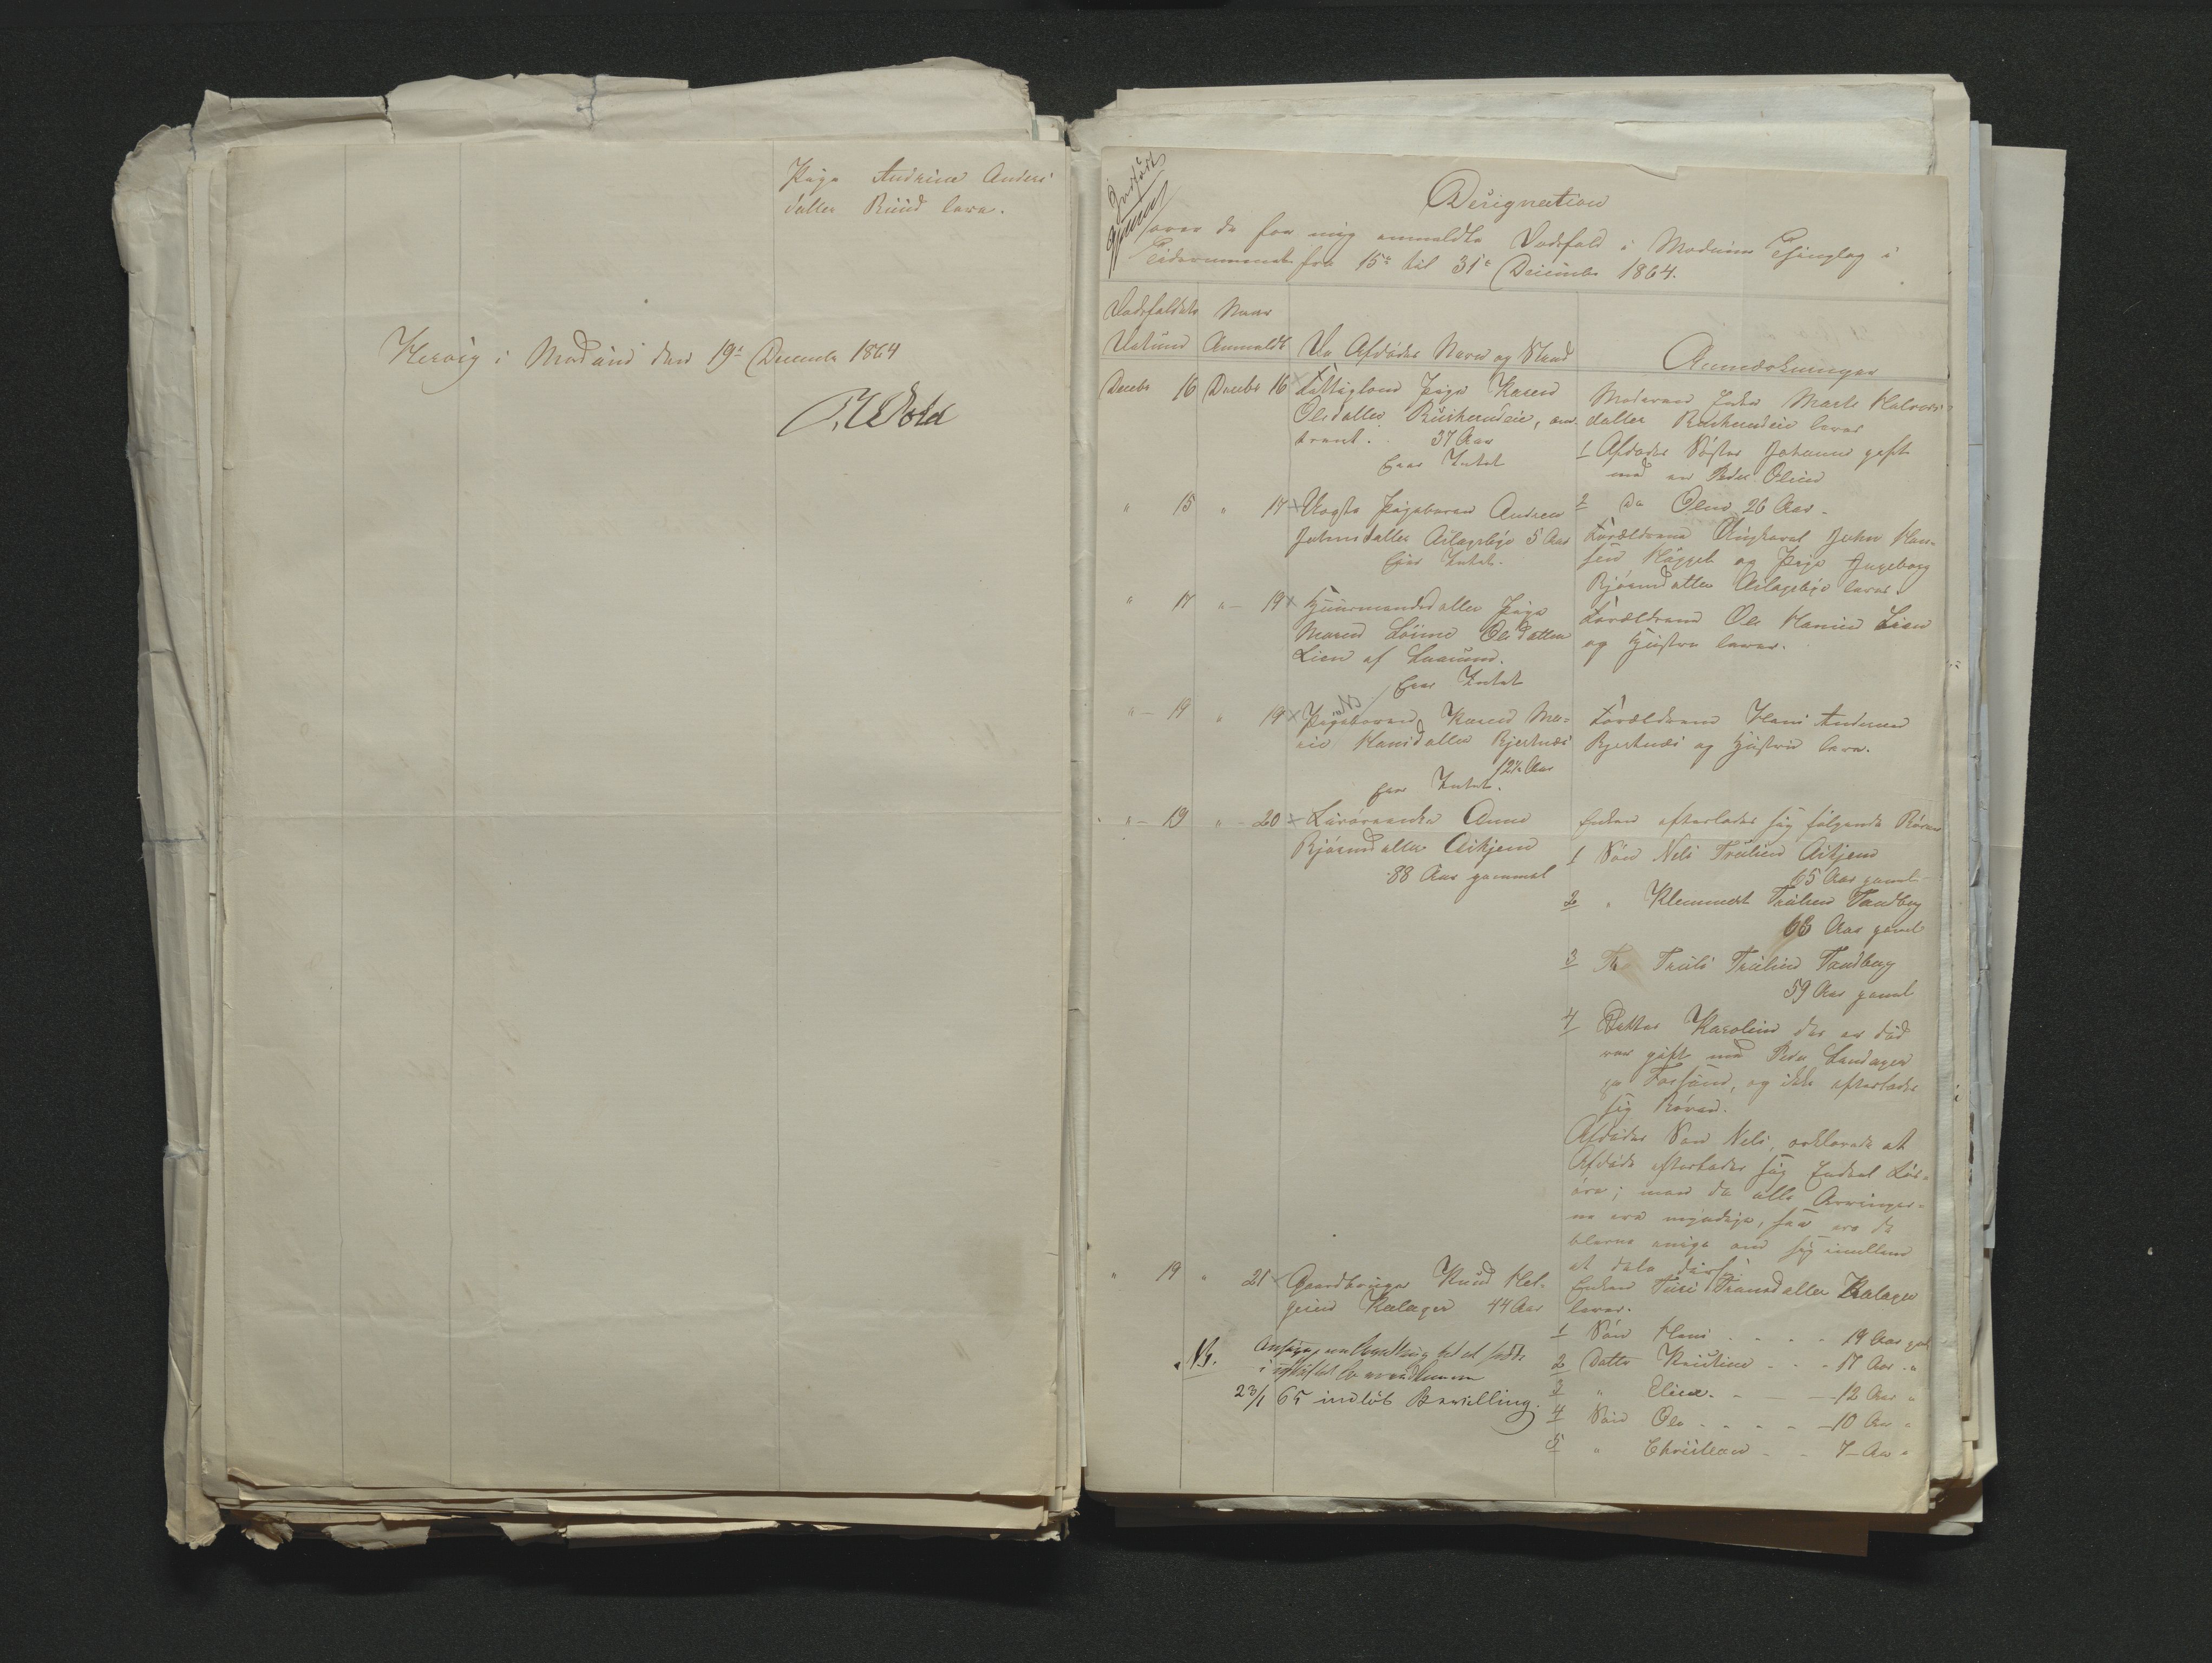 Pige Andrine Anders
datter Ruud lever.
Hervig i Modum den 19de December 1864
Indført
Designation
over de for mig anmeldte Dødsfald i Modums Thinglag i
Tidsrummet fra 15de til 31te December 1864.
Dødsfaldets Naar
Datum Anmeldt De Afdødes Navn og Stand Anmærkninger
Decebr 16 Decebr 16 Fattiglem Pige Karen
Olesdatter Buskerudeie, om-
trent 37 Aar
Eier Intet
Moderen Enke Marte Halvors-
datter Buskerudeie lever
1 Afdødes Søster Johanne gift
med en Peder Olsen
2 Do Olene 26 Aar.
" 15 " 17 Uægte Pigebarn Andrea
Johnsdatter Aslagsbye 5 Aar
Eier Intet.
Forældrene Ungkarl John Han-
sen Hagget og Pige Ingeborg
Bjørnsdatter Aslagsbye lever.
" 17 " 19 Huusmandsdatter Pige
Maren Lovise Olesdatter
Lien af Snarum.
Eier Intet
Forældrene Ole Hansen Lien
og Hustru lever.
" 19 " 19 Pigebarn Karen Ma-
rie Hansdatter Bjertnæs
12½ Aar
Eier Intet.
Forældrene Hans Andersen
Bjertnæs og Hustru lever.
" 19 " 20 Livøreenke Anne
Bjørnsdatter Askjem
88 Aar gammel
Enken efterlader sig følgende Børn
1 Søn Nels Trulsen Askjem
65 Aar gaml
2 " Klemmet Trulsen Tandberg
63 Aar gaml
3 Truls Trulsen Tandberg
59 Aar gaml
4 Datter Karoline der er død
var gift med Peder Landager
paa Fossum, og ikke efterlader
sig Børn.
Afdødes Søn Nels, erklærede at
Afdøde efterlader sig Endeel Løs-
øre; men da alle Arvinger-
ne ere myndige, saa ere de
blevne enige om sig imellem
at dele dette.
" 19 " 21 Gaardbruger Knud Hel-
gesen Kalager 44 Aar
Enken Turi Tronsdatter Kalager
lever.
1 Søn Hans - - - - 19 Aar gml
2 Datter Kristine - - - 17 Aar "
3 " Elise - - - 12 Aar "
4 Søn Ole - - - - 10 Aar "
5 " Christian - - 7 Aar "
NB. Ansøgn om Bevilling til at sidde
i uskiftet Bo
23/1 65 indløb Bevilling.